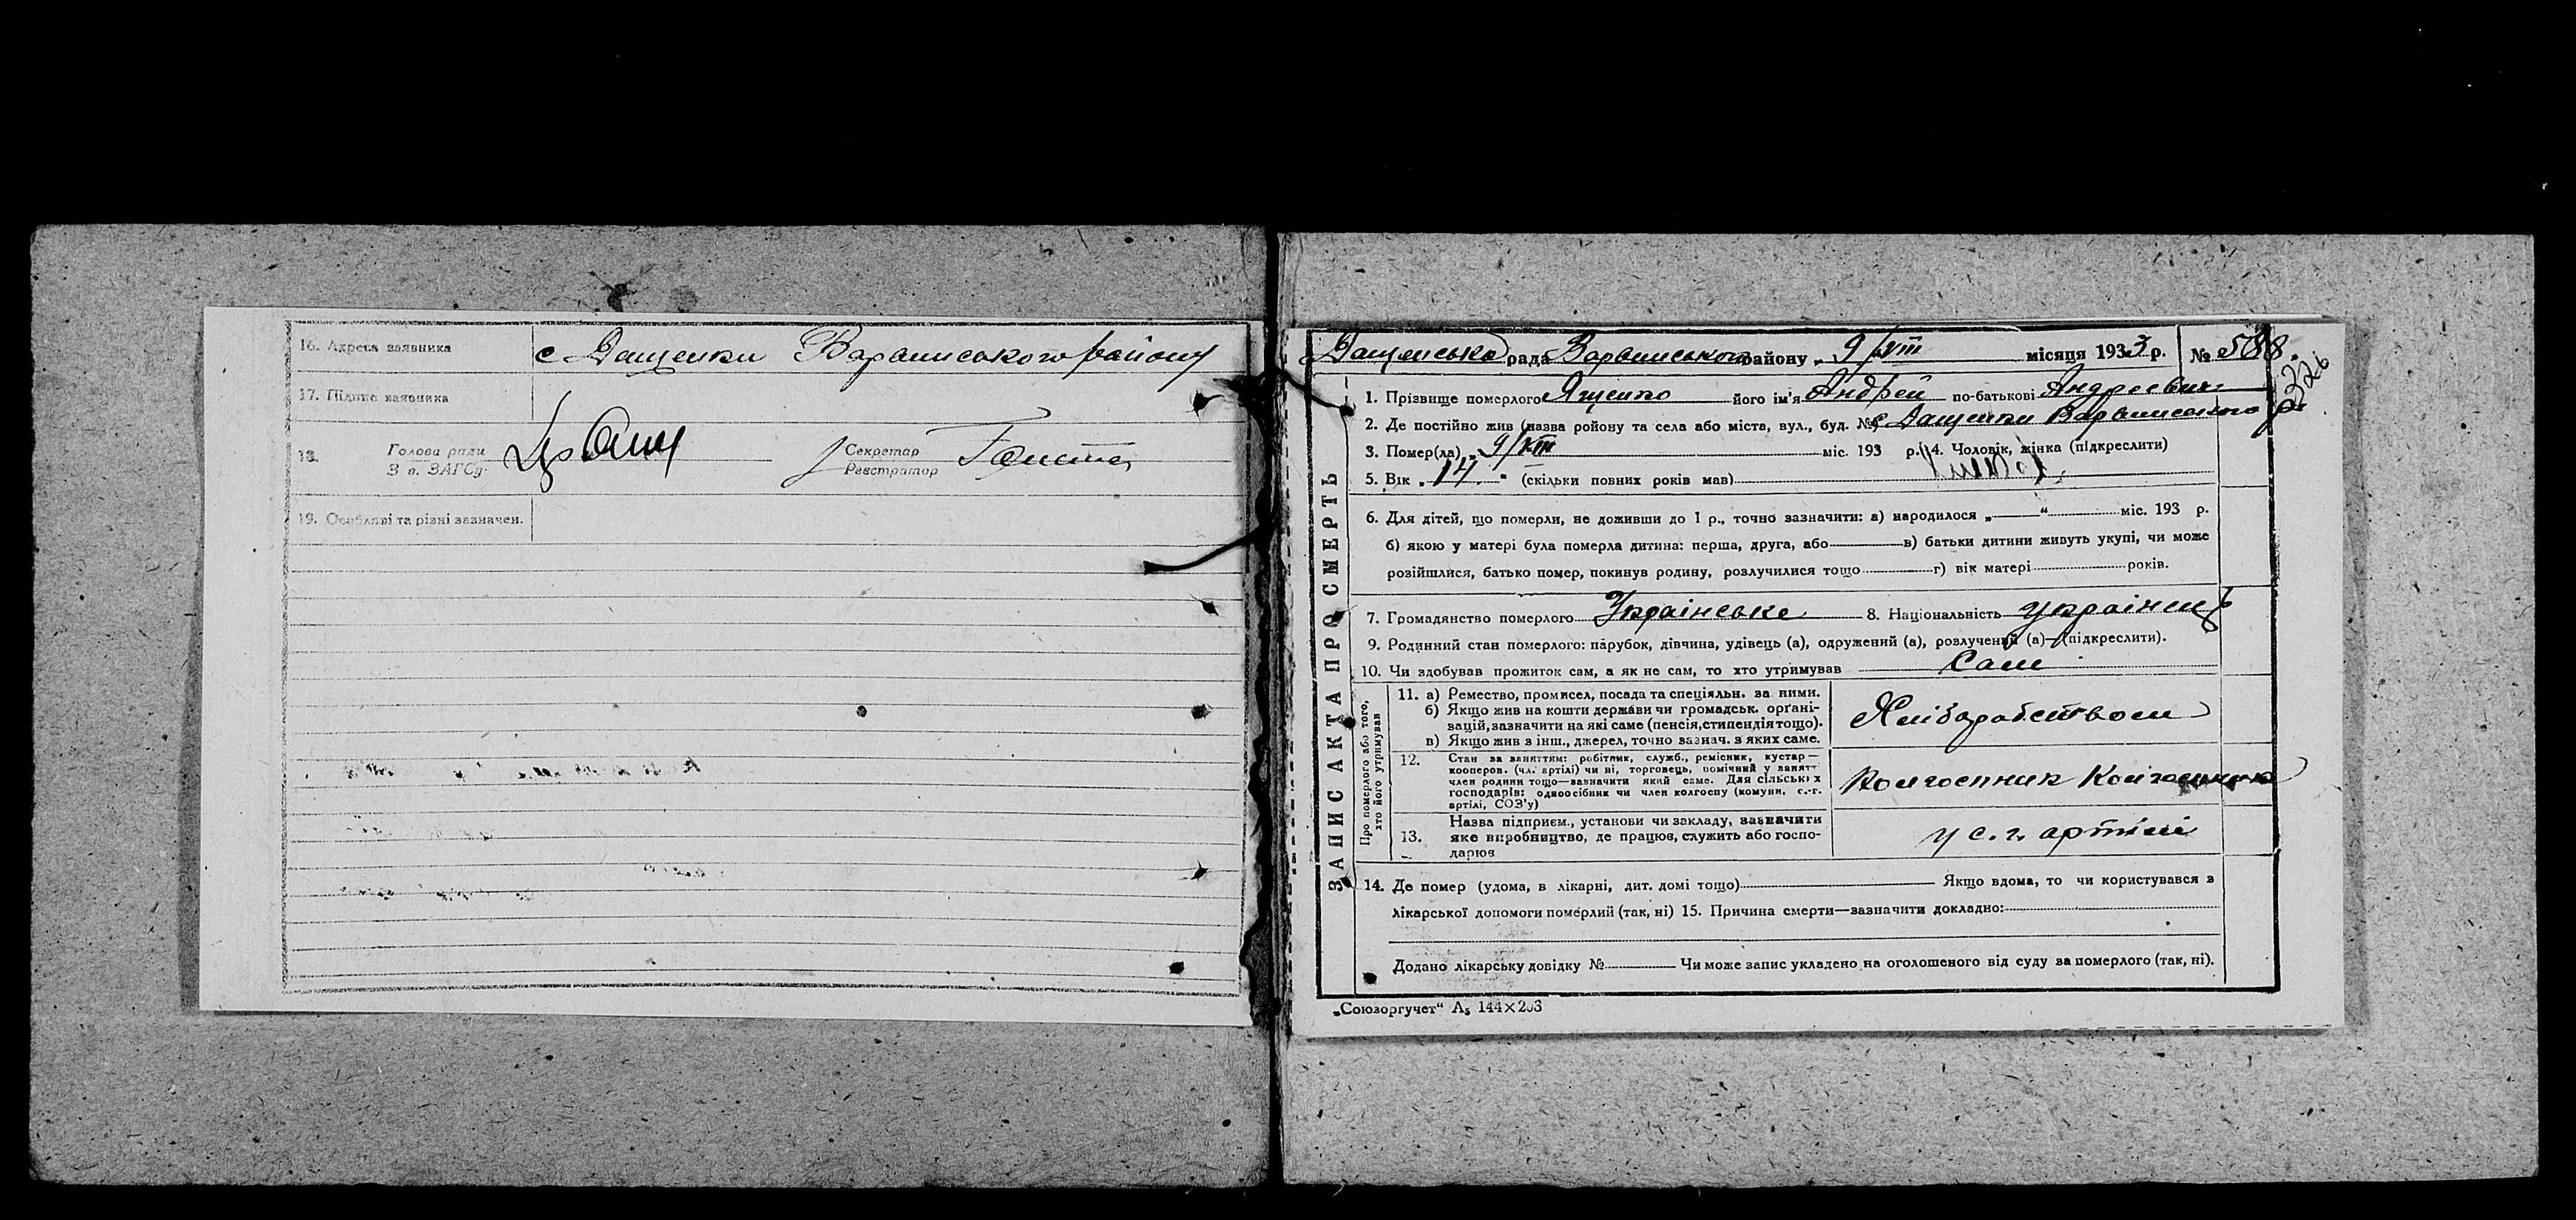 16. Адреса заявника с Дащенки Варвинського району
17. Підпис заявника
18. Голова ради
З в. ЗАГСу
Секретар
Реєстратор
19. Особливі та різні зазначен.
ЗАПИС АКТА ПРО СМЕРТЬ
Дащенська рада Варвинського району „ 9/VIII місяця 1933 р. № 588.
326
1. Прізвище померлого Ященко його ім'я Андрей по-батькові Андреевич
2. Де постійно жив (назва ройону та села або міста, вул., буд. № с Дащенки Варвинського р.
3. Помер(ла) „ 9/VIII міс. 193 р. 4. Чоловік, жінка (підкреслити)
5. Вік „ 14 “ (скільки повних років мав)
6. Для дітей, що померли, не доживши до 1 р., точно зазначити: а) народилося „ “ міс. 193 р.
б) якою у матері була померла дитина: перша, друга, або в) батьки дитини живуть укупі, чи може
розійшлися, батько помер, покинув родину, розлучилися тощо г) вік матері років.
7. Громадянство померлого Українське 8. Національність українець
9. Родинний стан померлого: парубок, дівчина, удівець (а), одружений (а), розлучений (а)—(підкреслити).
10. Чи здобував прожиток сам, а як не сам, то хто утримував Сам
Про померлого або того,
хто його утримував
11. а) Ремество, промисел, посада та спеціяльн. за ними.
б) Якщо жив на кошти держави чи громадськ. органі-
зацій, зазначити на які саме (пенсія, стипендія тощо).
в) Якщо жив з інш., джерел, точно зазнач. з яких саме.
Хліборобством
12. Стан за заняттям: робітник, служб., ремісник, кустар—
кооперов. (чл. артілі) чи ні, торговець, помічний у занятт
член родини тощо—зазначити який саме. Для сільських
господарів: одноосібник чи член колгоспу (комуни, с.-г.
артілі, СОЗ'у)
Колгоспник
13. Назва підприєм., установи чи закладу, зазначити
яке виробництво, де працює, служить або госпо-
дарює
у с. г. артілі
14. Де помер (удома, в лікарні, дит. домі тощо) Якщо вдома, то чи користувався з
лікарської допомоги померлий (так, ні) 15. Причина смерти—зазначити докладно:
Додано лікарську довідку № Чи може запис укладено на оголошеного від суду за померлого (так, ні).
„Союзоргучет“ А₅ 144×203